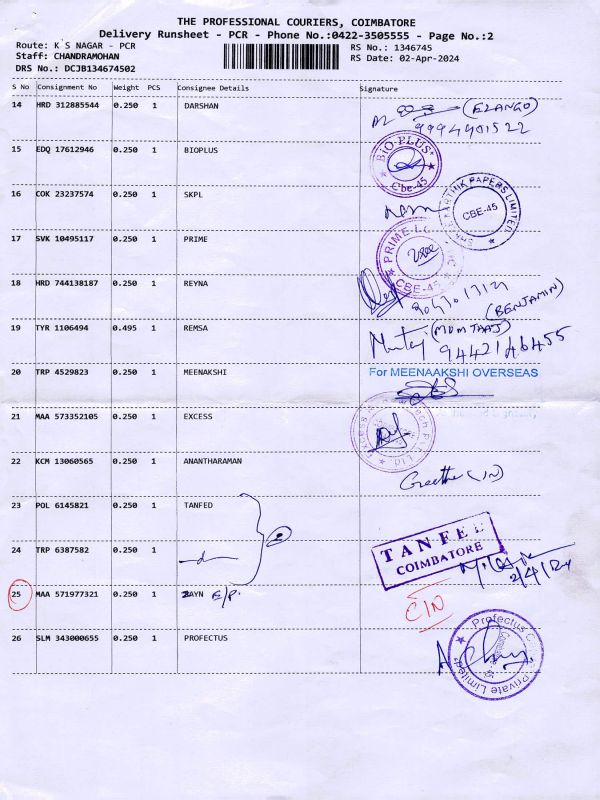 THE PROFESSIONAL COURIERS, COIMBATORE
Delivery Runsheet - PCR - Phone No.:0422-3505555 - Page No.:2
Route: K S NAGAR - PCR
RS No.: 1346745
Staff: CHANDRAMOHAN
RS Date: 02-Apr-2024
DRS No.: DCJB134674502
S No Consignment No Weight PCS Consignee Details Signature
14 HRD 312885544 0.250 1 DARSHAN (ELANGO)
9994901522
15 EDQ 17612946 0.250 1 BIOPLUS
BIO PLUS
Cbe-45
16 COK 23237574 0.250 1 SKPL
KARTHIK PAPERS LIMITED
CBE-45
17 SVK 10495117 0.250 1 PRIME
PRIME
CBE-45
18 HRD 744138187 0.250 1 REYNA
(BENJAMIN)
19 TYR 1106494 0.495 1 REMSA (MUMTAAJ)
9442146455
20 TRP 4529823 0.250 1 MEENAKSHI For MEENAAKSHI OVERSEAS
21 MAA 573352105 0.250 1 EXCESS
22 KCM 13060565 0.250 1 ANANTHARAMAN
Geetha (IN)
23 POL 6145821 0.250 1 TANFED
TANFED
COIMBATORE
24 TRP 6387582 0.250 1
2/4/24
25 MAA 571977321 0.250 1 ZAYN E/P.
C/N
26 SLM 343000655 0.250 1 PROFECTUS
Profectus
Private Limited